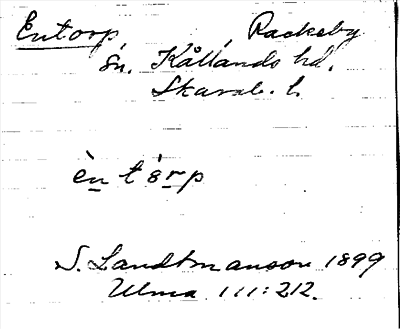 Entorp, Rackeby
sn. Kållands hd.
Skarab. l.
èn tórp
S. Landtmanson 1899
Ulma 111:212.